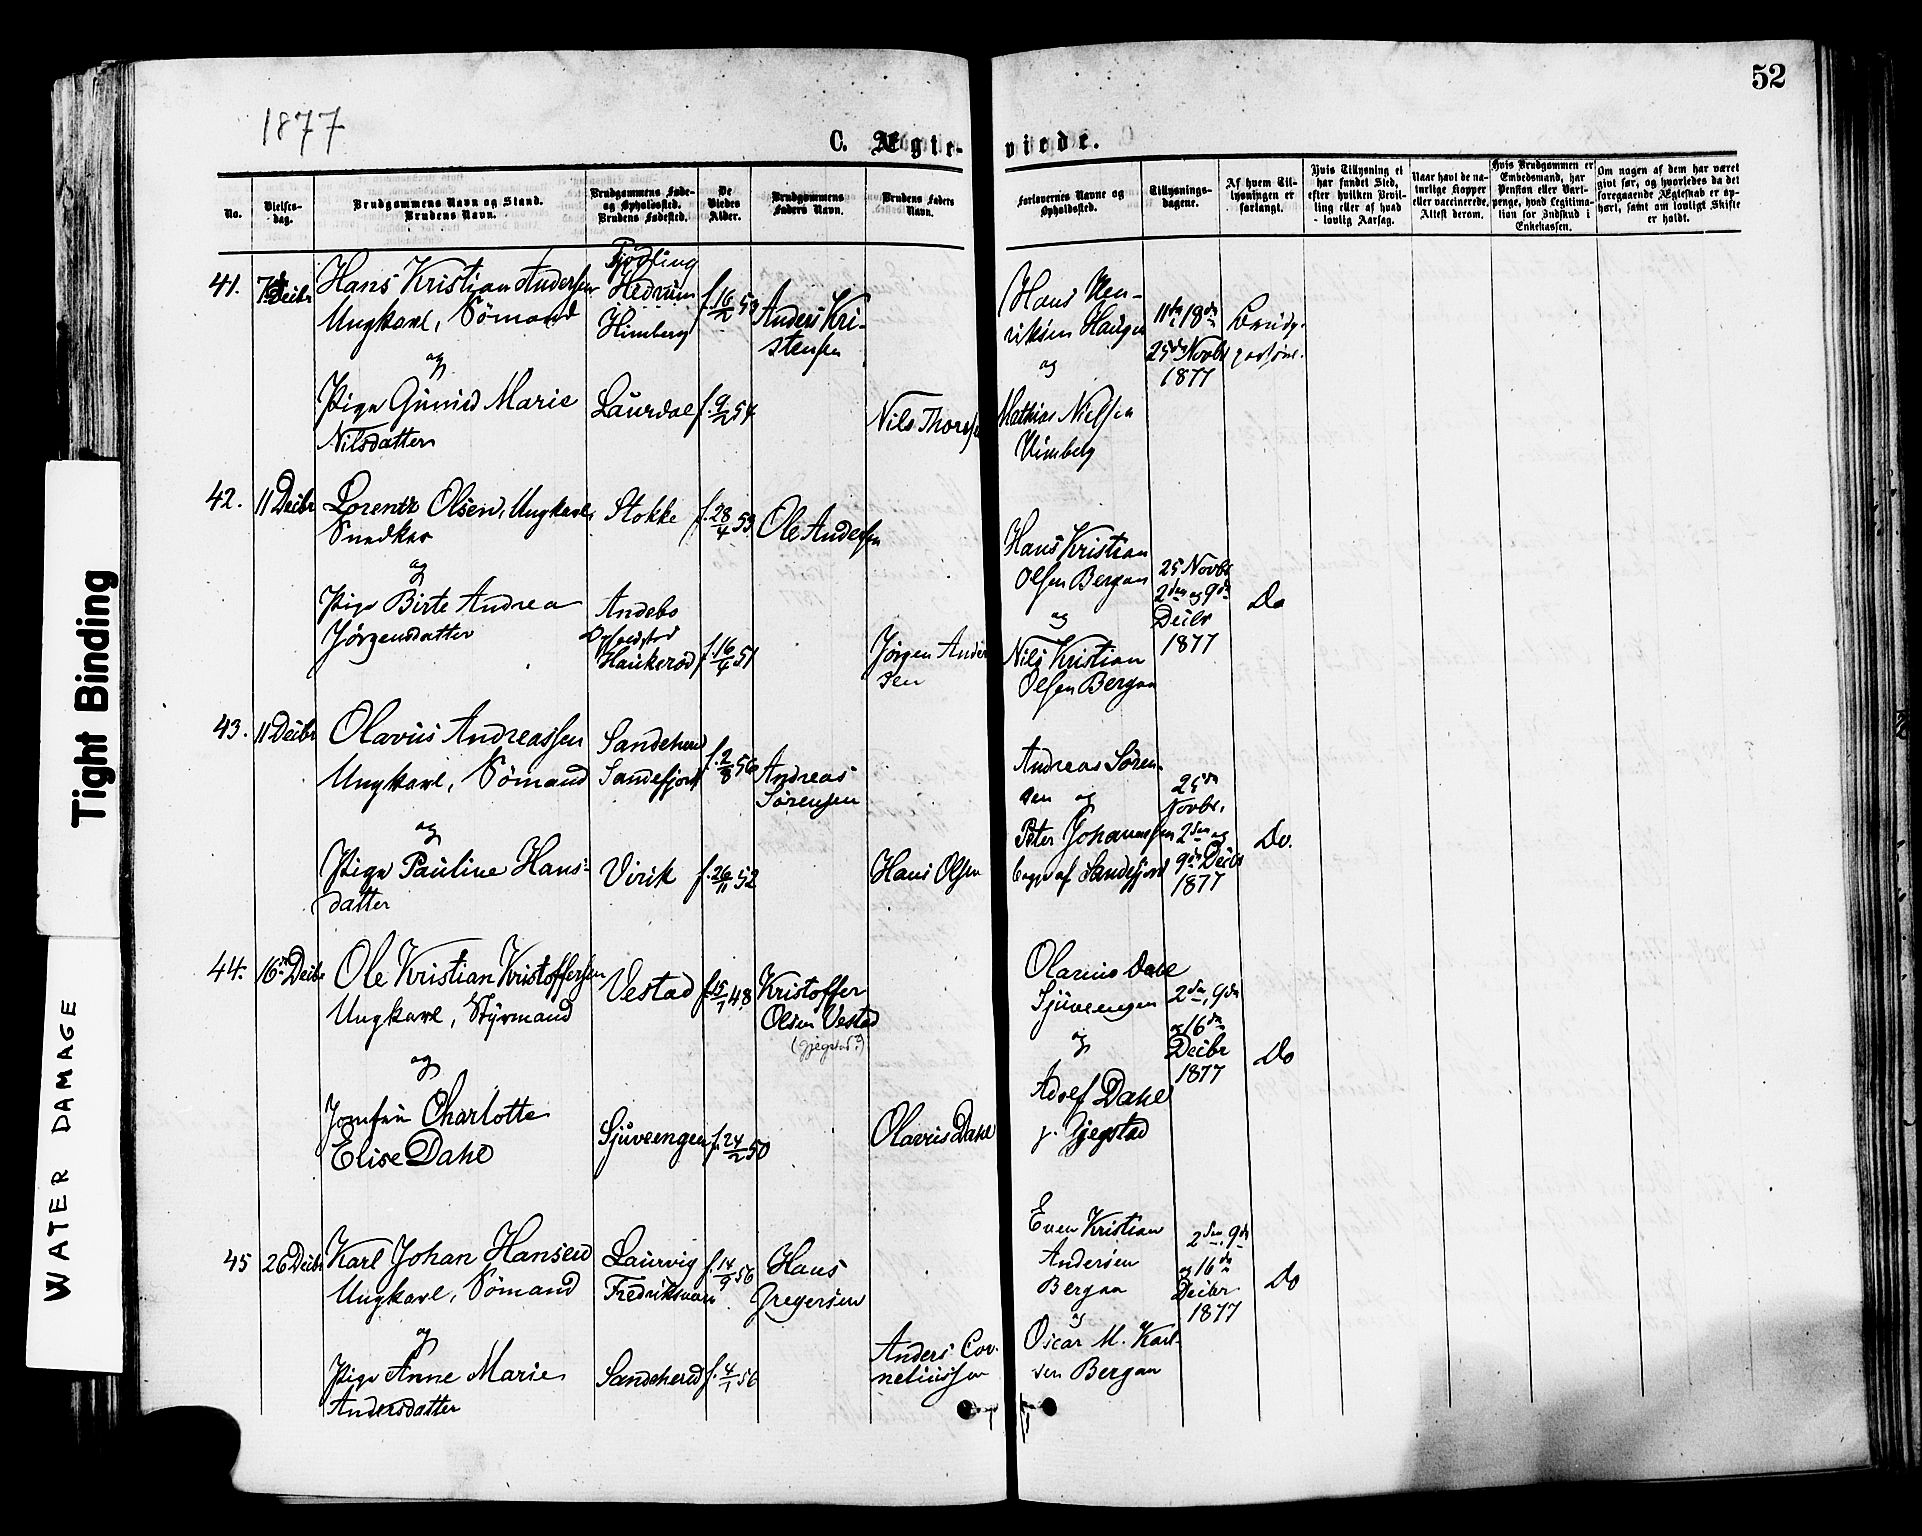 52
1877
C. Ægte-viede.
No.
Vielses-
dag.
Brudgommens Navn og Stand.
Brudens Navn.
Brudgommens Føde-
og Opholdssted.
Brudens Fødested.
De
Viedes
Alder.
Brudgommens
Faders Navn.
Brudens Faders
Navn.
Forlovernes Navne og
Opholdssted.
Tillysnings-
dagene.
Af hvem Til-
lysningen er
forlangt.
Hvis Tillysning ei
har fundet Sted,
efter hvilken Bevil-
ling eller af hvad
lovlig Aarsag.
Naar havt de na-
turlige Kopper
eller vaccinerede.
Attest derom.
Hvis Brudgommen er
Embedsmand, har
Pension eller Vart-
penge, hvad Legitima-
tion for Indskud i
Enkekassen.
Om nogen af dem har været
givt før, og hvorledes da det
foregaaende Ægteskab er op-
hørt, samt om lovligt Skifte
er holdt.
41.
7de Decbr
Hans Kristian Andersen
Ungkarl, Sømand
og
Pige Gunild Marie
Nilsdatter
Hedrum
Himberg
Laurdal
f. 16/2 53
f. 9/2 54
Anders Kri-
stensen
Nils Thorsen
Hans Hen-
riksen Haugen
og
Mathias Nielsen
Himberg
11te 18de
25de Novbr
1877
Brudg.
42.
11 Decbr
Lorentz Olsen, Ungkarl,
Snedker
og
Pige Birte Andrea
Jörgensdatter
Stokke
Andebo
Opholdsted
Haukerød
f. 28/4 53
f. 16/4 51
Ole Andersen
Jörgen Ander
sen
Hans Kristian
Olsen Bergan
og
Nils Kristian
Olsen Bergan
25 Novbr
2den og 9de
Decbr
1877
Do
43.
11 Decbr
Olavus Andreassen
Ungkarl, Sömand
og
Pige Pauline Hans-
datter
Sandeherred
Sandefjord
Virik
f. 2/8 56
f. 26/11 52
Andreas
Sørensen
Hans Olsen
Andreas Sören-
sen og
Peter Johannesen
begge af Sandefjord
25de
Novbr.
2den og
9de Decbr
1877
Do.
44.
16de Decbr
Ole Kristian Kristoffersen
Ungkarl, Styrmand
og
Jomfru Charlotte
Elise Dahl
Vestad
Sjuveengen
f. 15/7 48
f. 24/2 50
Kristoffer
Olsen Vestad
(Gjegstad?)
Olavus Dahl
Olavus Dahl
Sjuveengen
og
Adolf Dahl
p. Gjegstad
2den, 9de
og 16de
Decbr
1877
Do
45
26 Decbr
Karl Johan Hansen
Ungkarl, Sömand
og
Pige Anne Marie
Andersdatter
Laurvig
Fredriksværn
Sandeherred
f. 14/9 56
f. 4/1 56
Hans
Gregersen
Anders Cor-
neliussen
Even Kristian
Andersen
Bergan
og
Oscar M. Karl-
sen Bergan
2den, 9de
og 16de
Decbr
1877
Do
Tight Binding
WATER DAMAGE